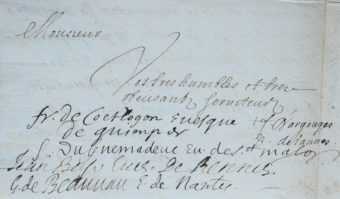 Monsieur
Vos tres humbles et tres
obeisants serviteurs
fr. de Coetlogon Euesque + f d'argouges
de quimper E. de vannes
f. Du guemadeuc Eu. de st malo
Jean Bap. Eues. De Rennes
G. de Beauuau E. de Nantes.